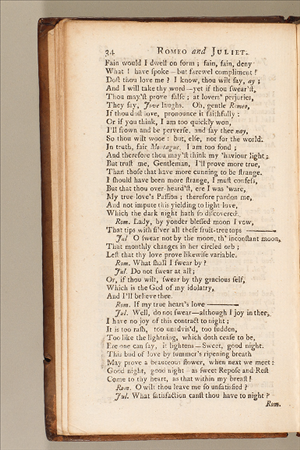 34 ROMEO and JULIET.
Fain would I dwell on form; fain, fain, deny
What I have spoke—but farewel compliment!
Doſt thou love me? I know, thou wilt ſay, ay;
And I will take thy word—yet if thou ſwear'ſt,
Thou may'ſt prove falſe; at lovers' perjuries,
They ſay, Jove laughs. Oh, gentle Romeo,
If thou doſt love, pronounce it faithfully:
Or if you think, I am too quickly won,
I'll frown and be perverſe, and ſay thee nay,
So thou wilt wooe: but, elſe, not for the world.
In truth, fair Montague, I am too fond;
And therefore thou may'ſt think my 'haviour light;
But truſt me, Gentleman, I'll prove more true,
Than thoſe that have more cunning to be ſtrange.
I ſhould have been more ſtrange, I muſt confeſs,
But that thou over-heard'ſt, ere I was 'ware,
My true love's Paſſion; therefore pardon me,
And not impute this yielding to light love,
Which the dark night hath ſo diſcovered.
Rom. Lady, by yonder bleſſed moon I vow,
That tips with ſilver all theſe fruit-tree tops—
Jul. O ſwear not by the moon, th' inconſtant moon,
That monthly changes in her circled orb;
Leſt that thy love prove likewiſe variable.
Rom. What ſhall I ſwear by?
Jul. Do not ſwear at all;
Or, if thou wilt, ſwear by thy gracious ſelf,
Which is the God of my idolatry,
And I'll believe thee.
Rom. If my true heart's love—
Jul. Well, do not ſwear—although I joy in thee,
I have no joy of this contract to night;
It is too raſh, too unadvis'd, too ſudden,
Too like the lightning, which doth ceaſe to be,
Ere one can ſay, it lightens—Sweet, good night.
This bud of love by ſummer's ripening breath
May prove a beauteous flower, when next we meet:
Good night, good night—as ſweet Repoſe and Reſt
Come to thy heart, as that within my breaſt!
Rom. O wilt thou leave me ſo unſatisfied?
Jul. What ſatisfaction canſt thou have to night?
Rom.